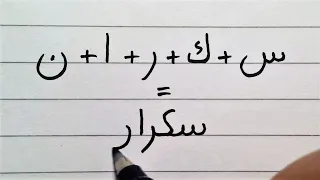 س + ك + ر + ا + ن
=
سكرار